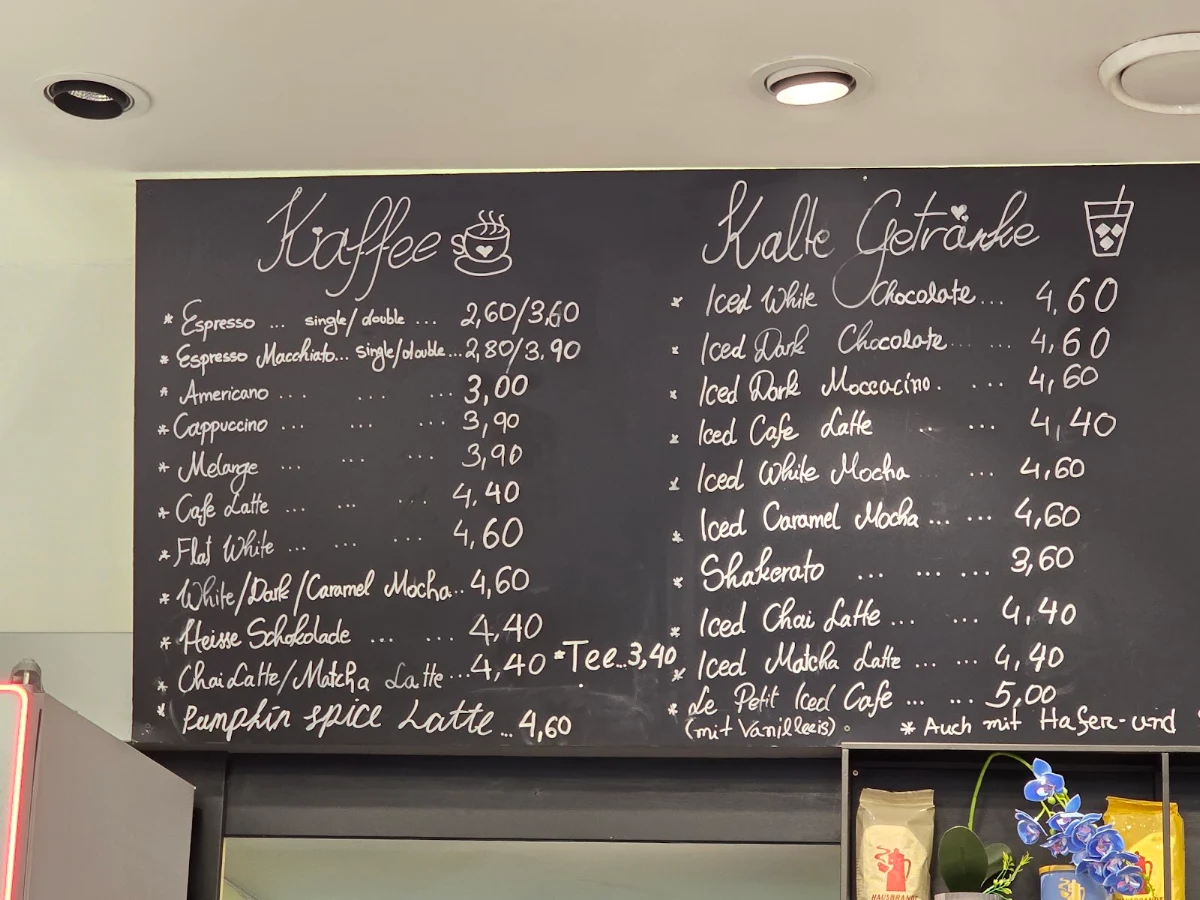 Kaffee
* Espresso ... single/double ... 2,60/3,60
* Espresso Macchiato... single/double...2,80/3.90
* Americano ... ... ...3,00
* Cappuccino ... ... ... 3,90
* Melange ... ... ... 3,90
* Cafe Latte ... ... ... 4,40
* Flat White ... ... ... 4,60
* White/Dark/Caramel Mocha...4,60
* Heisse Schokolade ... ... 4,40
* Chai Latte/Matcha Latte...4,40
*Tee...3,40
* Pumphin spice Latte...4,60
Kalte Getränke
* Iced White Chocolate... 4,60
* Iced Dark Chocolate ... ... 4,60
* Iced Dark Moccacino. ... 4,60
* Iced Cafe Latte ... ... 4,40
* Iced White Mocha ... 4,60
* Iced Caramel Mocha ... ... 4,60
* Shakerato ... ... ... 3,60
* Iced Chai Latte ... ... 4,40
* Iced Matcha Latte ... ... 4,40
* Le Petit Iced Cafe ... ... 5,00
(mit Vanilleeis)
* Auch mit Hafer-und
HAUSBRANDT
HAUSBRANDT